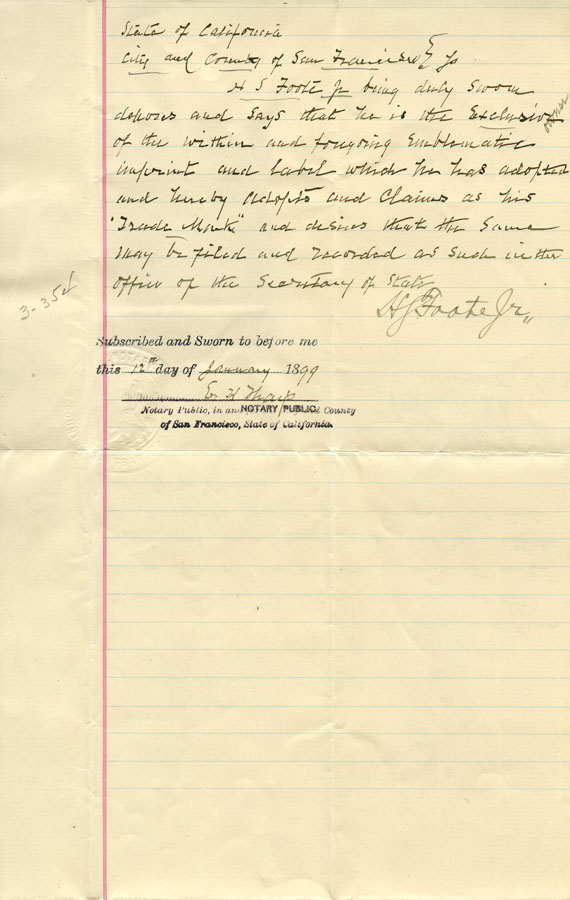 State of California
City and County of San Francisco } ss
H S Foote Jr being duly sworn
deposes and says that he is the Exclusive
owner
of the within and foregoing Emblematic
imprint and Label which he has adopted
and hereby adopts and Claims as his
"Trade Mark" and desires that the same
may be filed and recorded as such in the
office of the Secretary of State
H S Foote Jr.,
3-354
Subscribed and Sworn to before me
this 12th day of January 1899
E. H. Tharp
Notary Public, in and County
NOTARY PUBLIC.
of San Francisco, State of California.